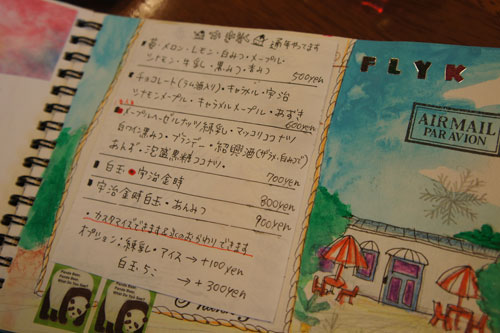 通年やってます
・苺・メロン・レモン・白みつ・メープル
シナモン・牛乳・黒みつ・青みつ
500yen
チョコレート(ラム酒入り)・キャラメル・宇治
シナモンメープル・キャラメルメープル・あずき
600yen
メープルヘーゼルナッツ練乳・マッコリココナツ
白ワイン黒みつ・ブランデー・紹興酒
あんず・泡盛黒糖ココナツ・
700yen
白玉・宇治金時
800yen
宇治金時白玉・あんみつ
900yen
・カスタマイズできます
おかわりできます
オプション:練乳・アイス→+100yen
白玉5コ → +300yen
FLYK
AIR MAIL
PAR AVION